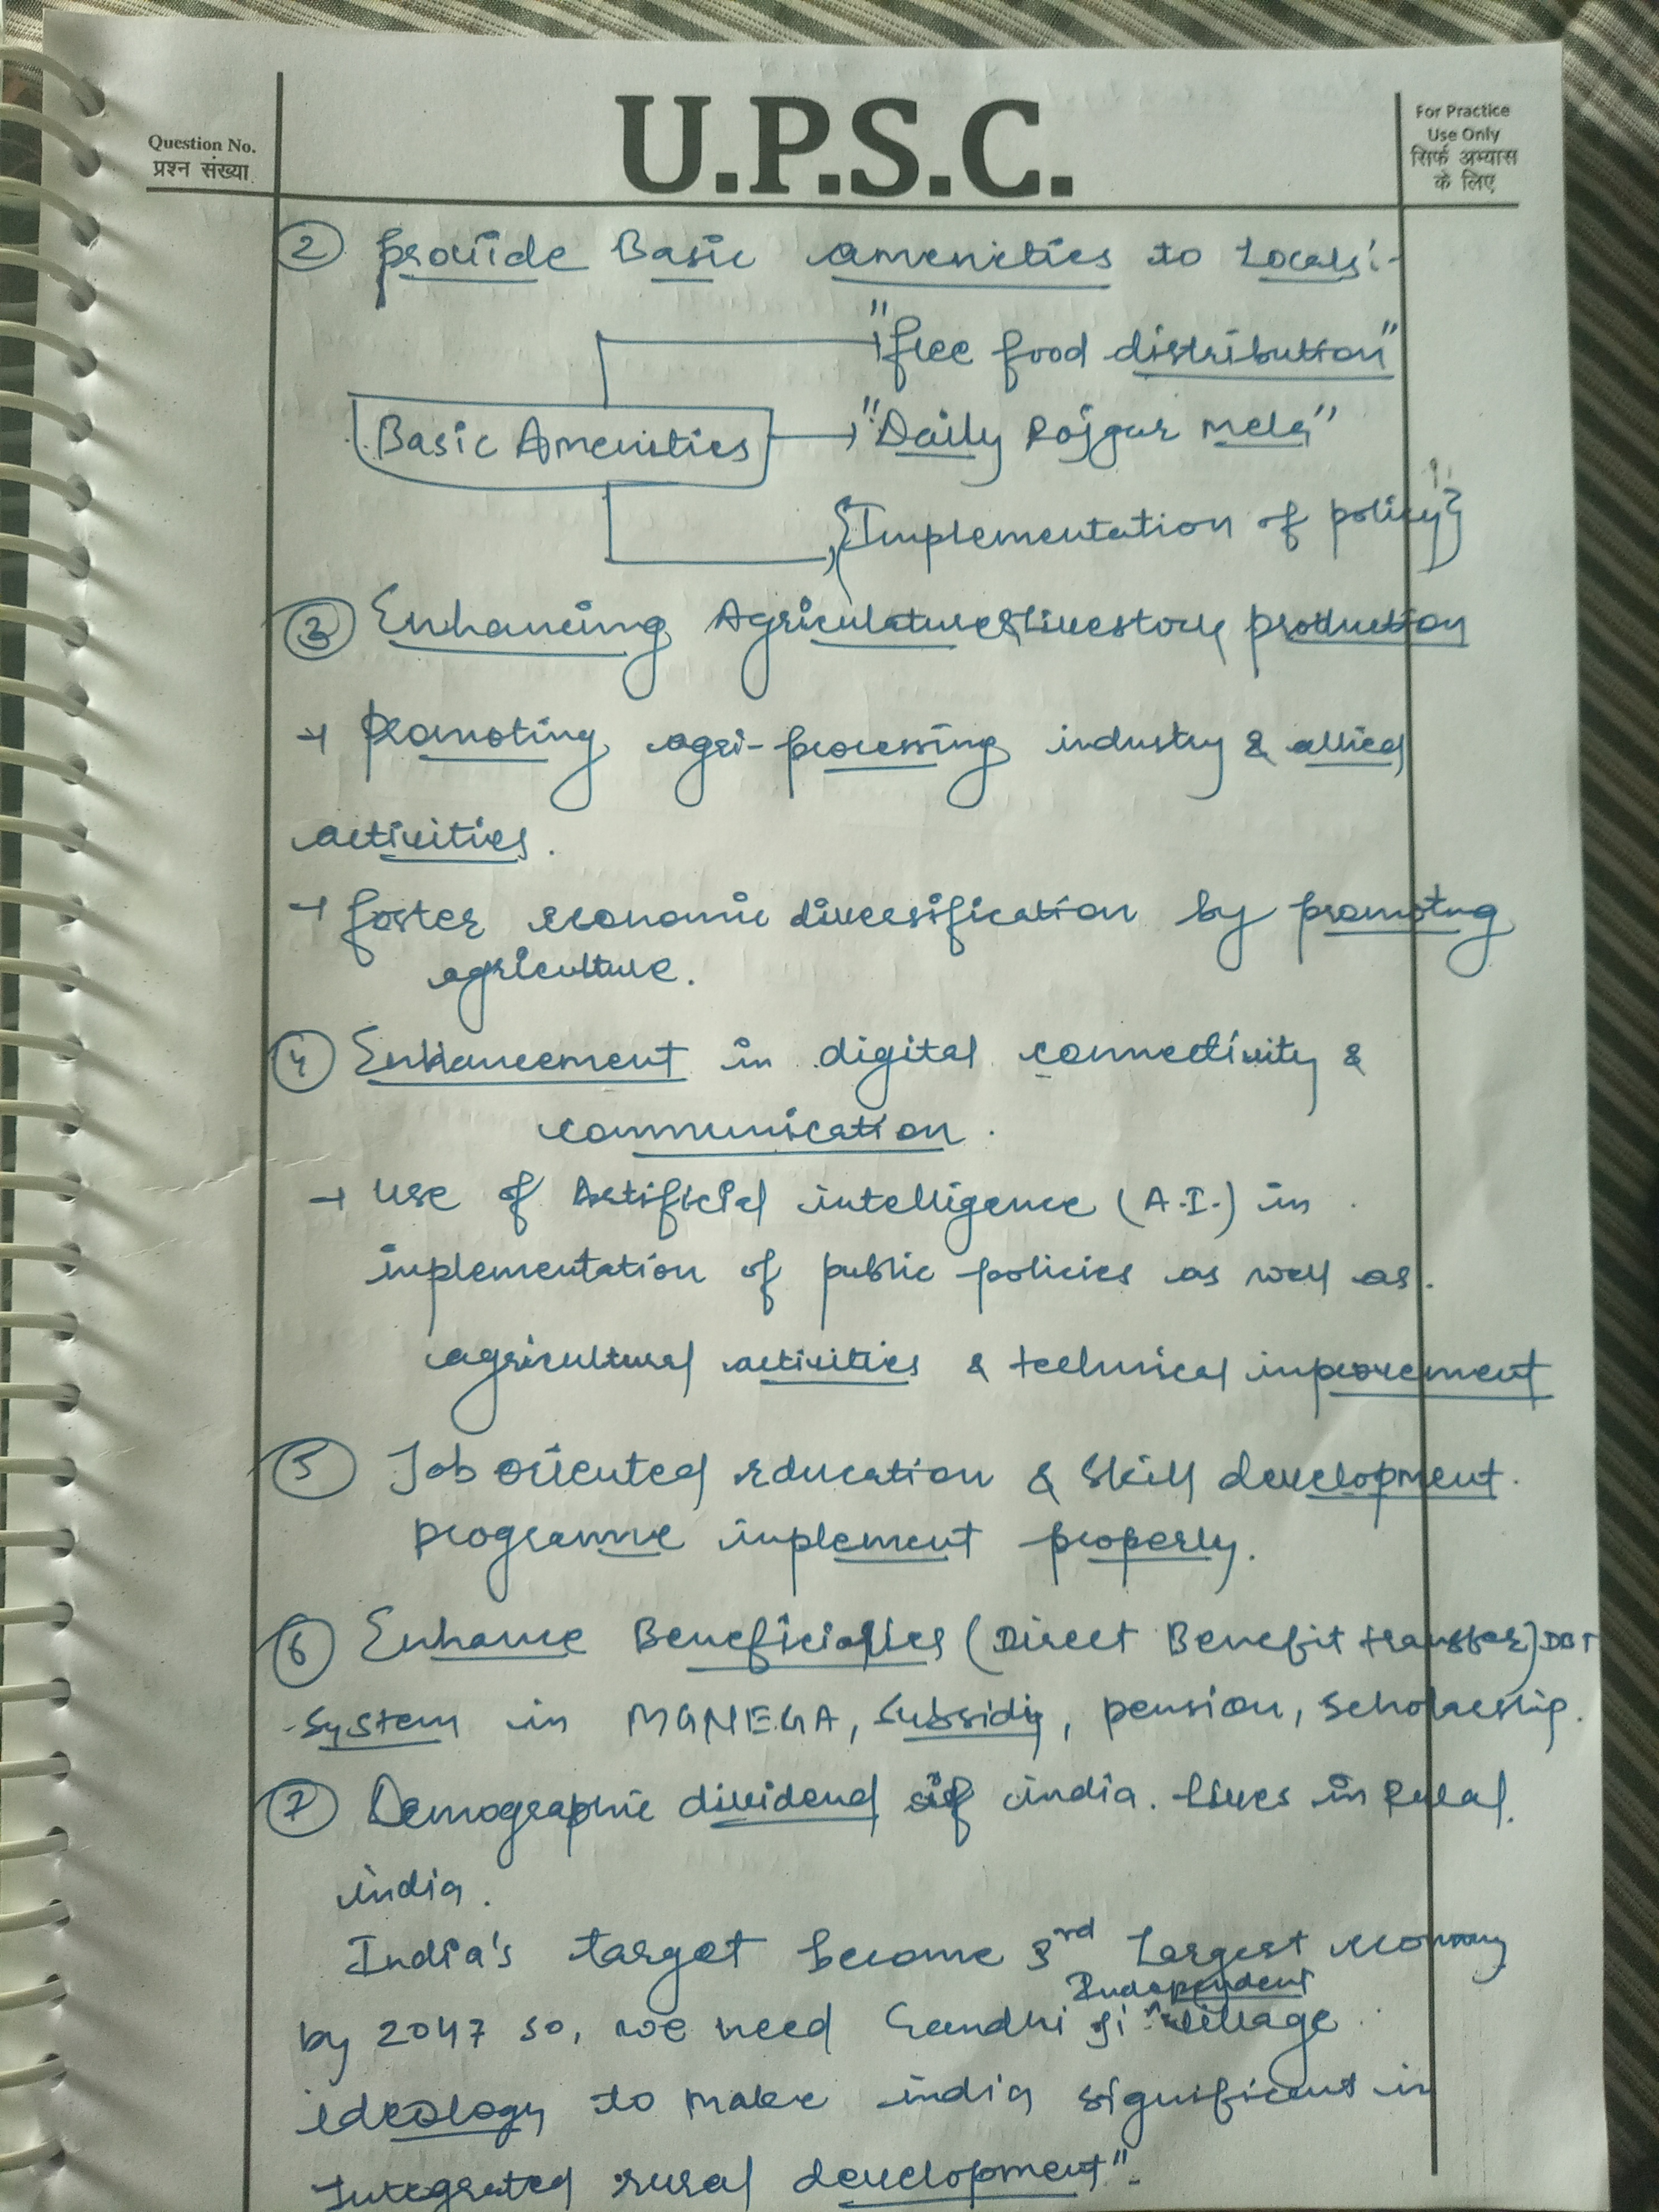 Question No.
प्रश्न संख्या
U.P.S.C.
For Practice
Use Only
सिर्फ अभ्यास
के लिए
② Provide Basic amenities to Locals:-
"free food distribution"
Basic Amenities → "Daily Rojgar mela"
{Implementation of policy}
③ Enhancing Agriculature & Livestock production
→ Promoting agri-processing industry & allied
activities.
→ foster economic diversification by promotng
agriculture.
④ Enhancement in digital connectivity &
communication.
→ Use of Artificial intelligence (A.I.) in
implementation of public policies as well as
agricultural activities & technical improvement
⑤ Job oriented education & Skill development
programme implement properly.
⑥ Enhance Beneficiaries (Direct Benefit transfer) DBT
System in MGNEGA, Subsidy, pension, Scholarship.
⑦ Demographic dividend of india. Lives in Rural
india.
India's target become 3rd Largest economy
by 2047 so, we need Gandhi ji "Independent village
ideology to make india significant in
Integrated rural development".